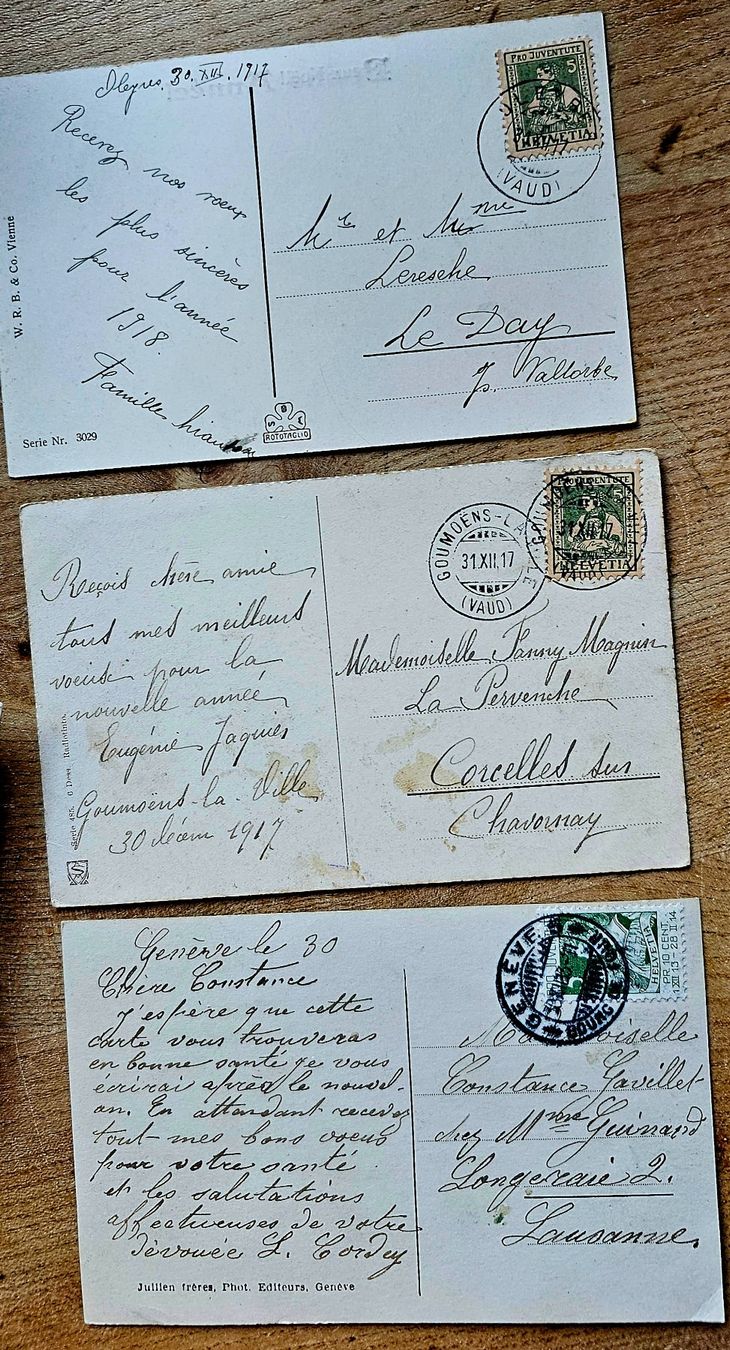 30.XII.1917
Recevez nos vœux
les plus sincères
pour l'année
1918.
Familles
W. R. B. & Co. Vienne
Serie Nr. 3029
ROTOTAGLIO
PRO JUVENTUTE
5
HELVETIA
(VAUD)
Mr et Mme
Leresche
Le Day
p. Vallorbe
Reçois chère amie
tous mes meilleurs
voeux pour la
nouvelle année
Eugénie Jaquier
Goumoëns-la-Ville
30 décem 1917
GOUMOËNS-LA-VILLE
31.XII.17
(VAUD)
31.XII.17
HELVETIA
Mademoiselle Fanny Magnin
La Pervenche
Corcelles sur
Chavornay
Genève le 30
Chère Constance
J'espère que cette
carte vous trouveras
en bonne santé je vous
écrirai après le nouvel-
an. En attendant recevez
tout mes bons voeux
pour votre santé
et les salutations
affectueuses de votre
dévouée L. Cordey
Jullien frères, Phot. Editeurs, Genève
GENÈVE
5
HELVETIA
PR 10 CENT.
1 XII 13 - 28 II 14
Mademoiselle
Constance Gavillet
chez Mme Guinand
Longeraie 2.
Lausanne.